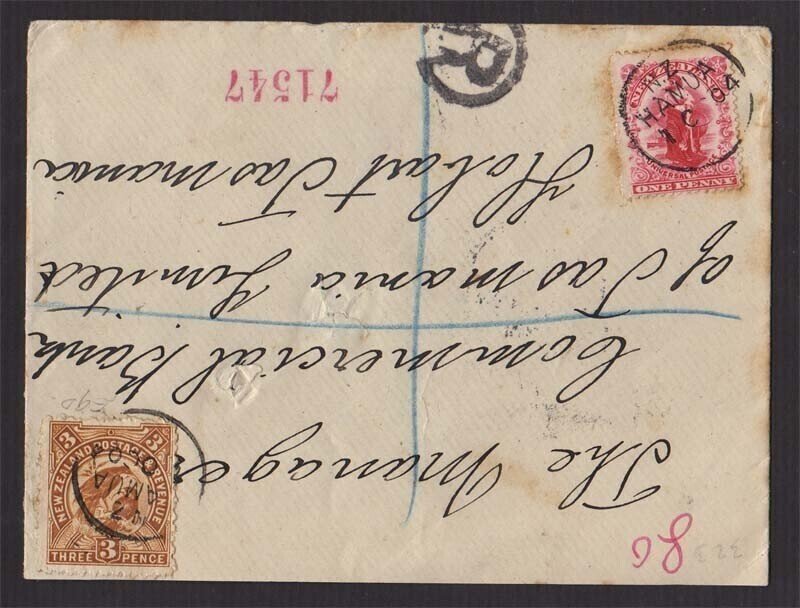 The Manager
Commercial Bank
of Tasmania Limited
Hobart Tasmania
71547
R
NEW ZEALAND
UNIVERSAL POSTAGE
ONE PENNY
N.Z
HAMUA
C
04
NEW ZEALAND POSTAGE & REVENUE
3
3
3
THREE PENCE
HAMUA
323